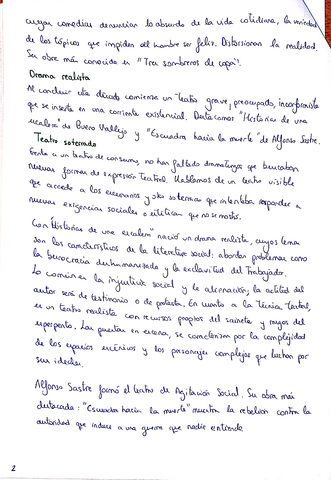 cuyas comedias denuncian lo absurdo de la vida cotidiana, la
de los tópicos que impiden al hombre ser feliz. Distorsionan la realidad.
Su obra más conocida es "Tres sombreros de copa".
Drama realista
Al concluir esta década comienza un teatro grave, preocupado, inconformista
que se inserta en una corriente existencial. Destacamos "Historias de una
escalera" de Buero Vallejo y "Escuadra hacia la muerte" de Alfonso Sastre.
Teatro soterrado
Frente a un teatro de consumo, no han faltado dramaturgos que buscaban
nuevas formas de expresión teatral. Hablamos de un teatro visible
que accede a los escenarios y otro soterrado que intentaba responder a
nuevas exigencias sociales o estéticas que no se mostró.
Con "Historias de una escalera" nació un drama realista, cuyos temas
son los característicos de la literatura social: abordan problemas como
la burocracia deshumanizada y la esclavitud del Trabajador.
Lo común es la injusticia social y la alienación; la actitud del
autor será de testimonio o de protesta. En cuanto a la técnica teatral,
es un teatro realista con recursos propios del sainete y rasgos del
esperpento. Las puestas en escena, se caracterizan por la complejidad
de los espacios escénicos y los personajes complejos que luchan por
sus ideales.
Alfonso Sastre formó el teatro de Agitación Social. Su obra más
destacada: "Escuadra hacia la muerte" muestra la rebelión contra la
autoridad que induce a una guerra que nadie entiende.
2